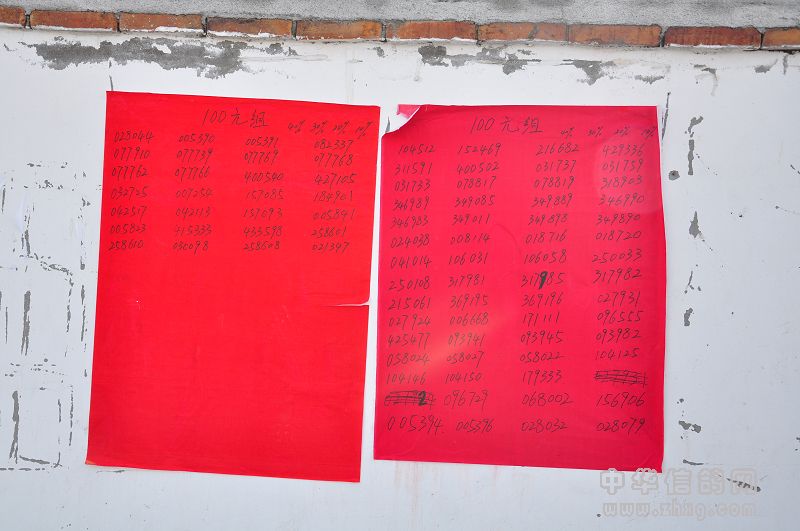 100元组 40% 30% 20% 10%
028044 005390 005391 082337
077910 077739 077769 077768
077762 077766 400540 427105
032725 007254 157085 184901
042517 042113 157093 005841
005823 415333 433598 258601
258610 036098 258608 021347
100元组 40% 30% 20% 10%
104512 152469 216682 429336
311591 400502 031737 031739
031733 078817 078819 318903
346989 349085 349889 346990
346983 349011 349898 349890
024038 008114 018716 018720
041014 106031 106058 250033
250108 317981 317985 317982
215061 369195 369196 027931
027924 006668 171111 096555
425477 093941 093945 093982
058024 058027 058022 104125
104146 104150 179333
096729 068002 156906
005394 005396 028032 028079
中华信鸽网
www.zhxg.com